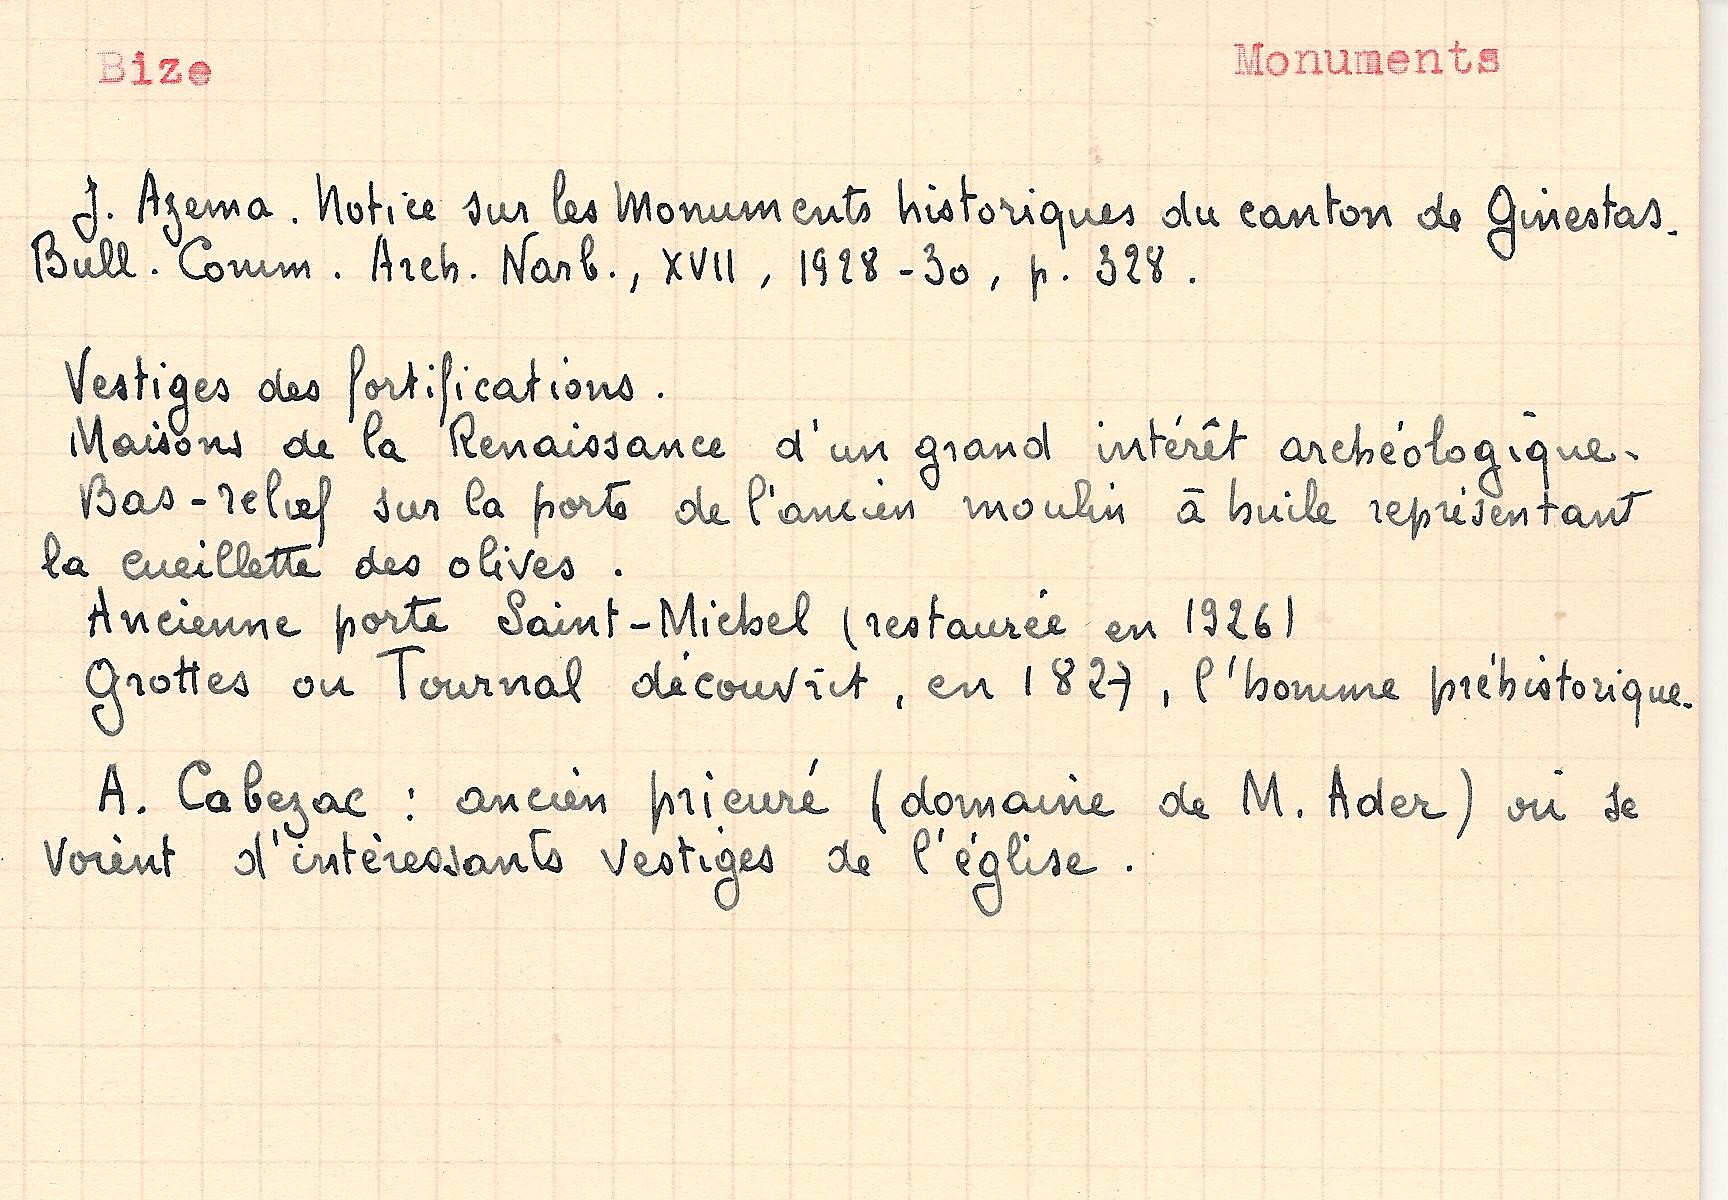 Bize
Monuments
J. Azema. Notice sur les Monuments historiques du canton de Ginestas.
Bull. Comm. Arch. Narb., XVII, 1928-30, p. 328.
Vestiges des fortifications.
Maisons de la Renaissance d'un grand intérêt archéologique.
Bas-relief sur la porte de l'ancien moulin à huile représentant
la cueillette des olives.
Ancienne porte Saint-Michel (restaurée en 1926)
Grottes ou Tournal découvrit, en 1827, l'homme préhistorique.
A. Cabezac : ancien prieuré (domaine de M. Ader) où se
voient d'intéressants vestiges de l'église.